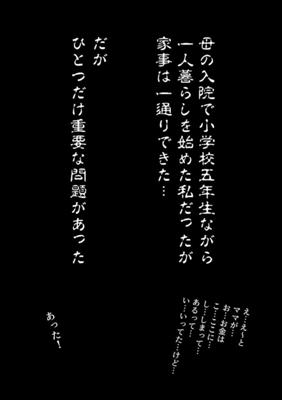 母の入院で小学校五年生ながら
一人暮らしを始めた私だったが
家事は一通りできた…
だが
ひとつだけ重要な問題があった
え…え〜と
ママが…
お…お金は
こ…ここに…
し…しまって…
あるって…
い…いってた…けど…
あった!